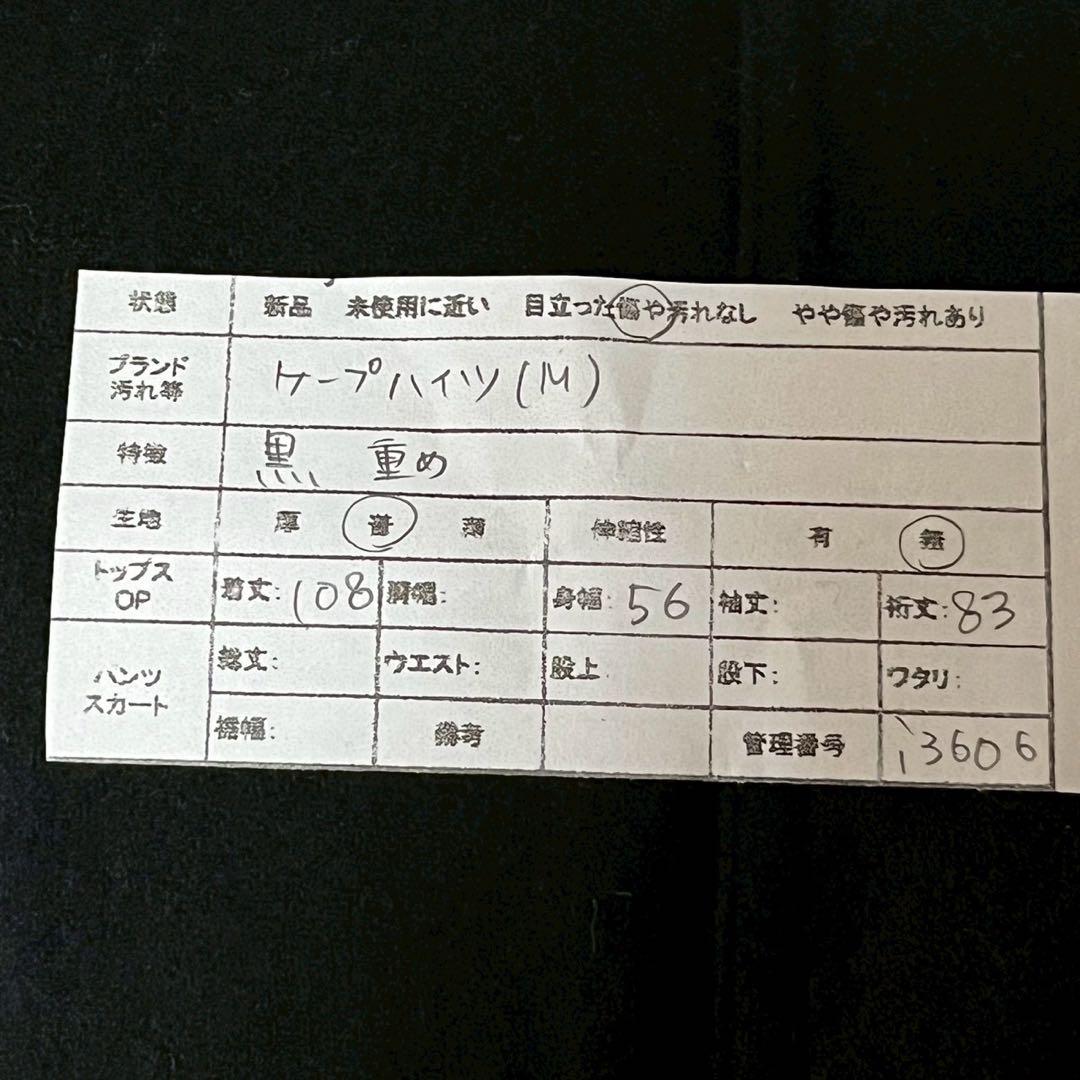 状態 新品 未使用に近い 目立った傷や汚れなし やや傷や汚れあり
ブランド
汚れ等 ケープハイツ(M)
特徴 黒 重め
生地 厚 普 薄 伸縮性 有 無
トップス
OP 着丈: 108 胴幅: 身幅: 56 袖丈: 裄丈: 83
パンツ
スカート 総丈: ウエスト: 股上: 股下: ワタリ:
裾幅: 備考 管理番号 i3606